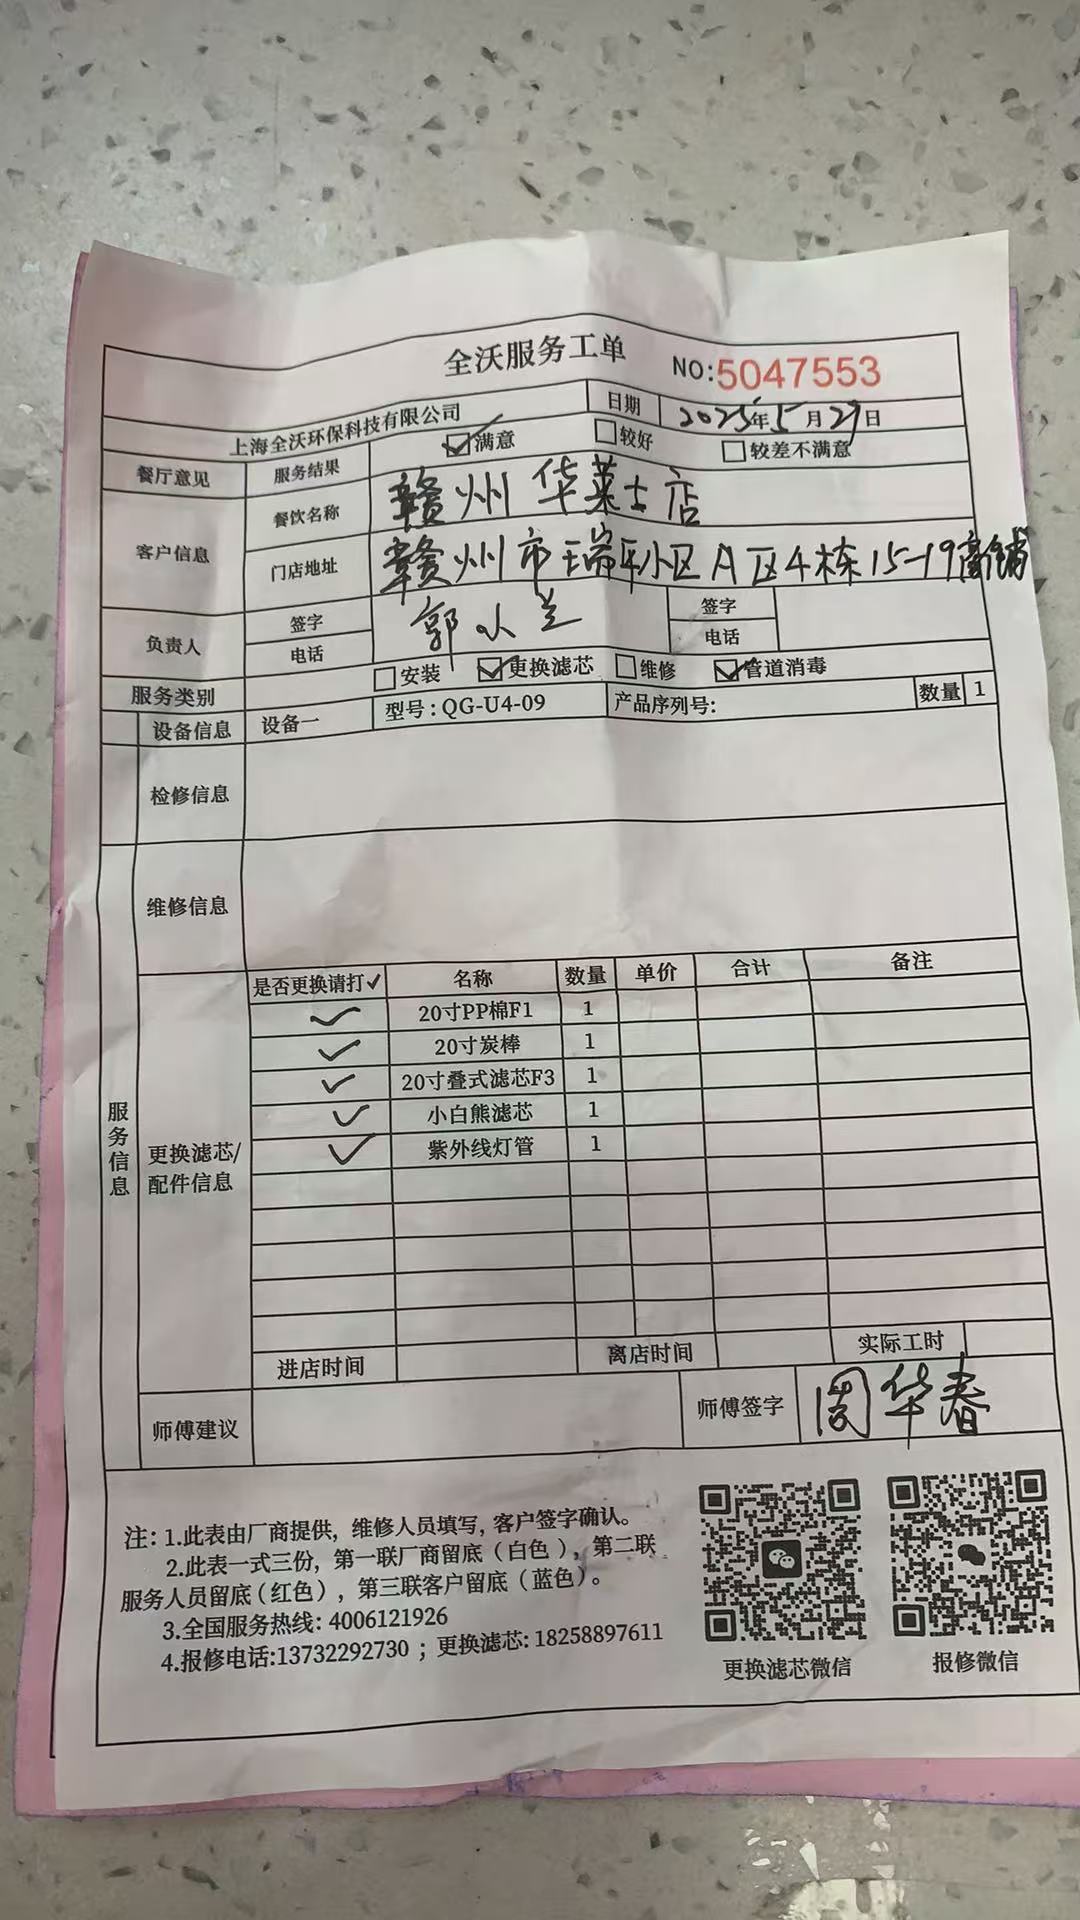 全沃服务工单 NO:5047553
上海全沃环保科技有限公司 日期 2025年5月29日
餐厅意见 服务结果 ☑满意 □较好 □较差不满意
客户信息 餐饮名称 赣州华莱士店
门店地址 赣州市瑞平小区A区4栋15-19商铺
负责人 签字 郭小兰 签字
电话 电话
服务类别 □安装 ☑更换滤芯 □维修 ☑管道消毒
设备信息 设备一 型号:QG-U4-09 产品序列号: 数量 1
检修信息
维修信息
服务信息
更换滤芯/
配件信息
是否更换请打✓ 名称 数量 单价 合计 备注
✓ 20寸PP棉F1 1
✓ 20寸炭棒 1
✓ 20寸叠式滤芯F3 1
✓ 小白熊滤芯 1
✓ 紫外线灯管 1
进店时间 离店时间 实际工时
师傅建议 师傅签字 周华春
注: 1.此表由厂商提供, 维修人员填写, 客户签字确认。
2.此表一式三份, 第一联厂商留底(白色), 第二联
服务人员留底(红色), 第三联客户留底(蓝色)。
3.全国服务热线: 4006121926
4.报修电话:13732292730 ; 更换滤芯: 18258897611
更换滤芯微信 报修微信